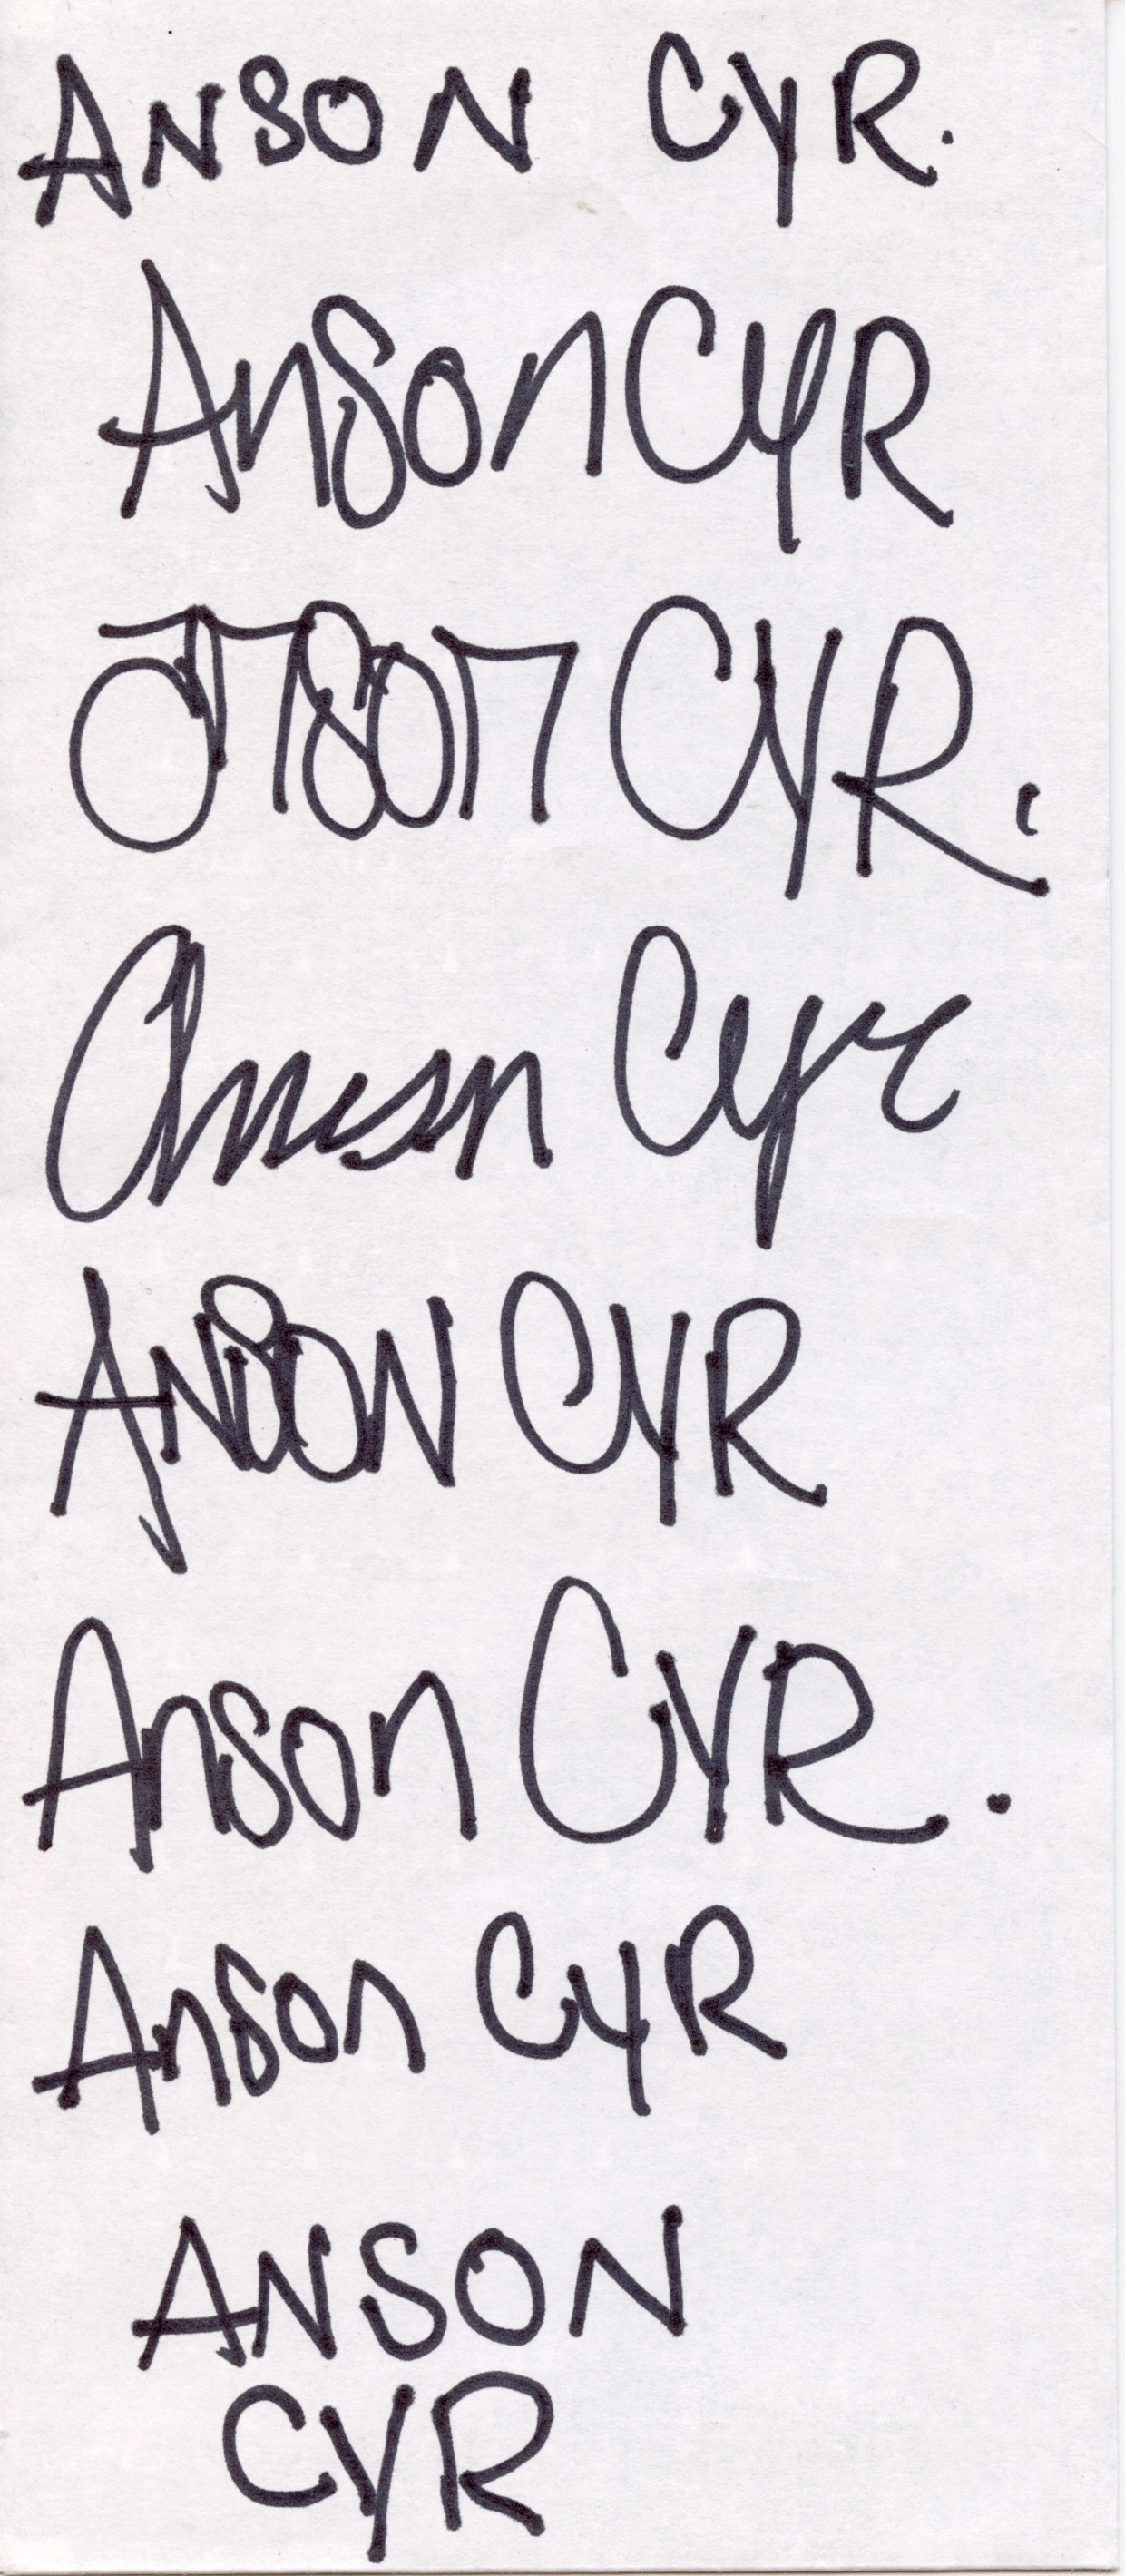 ANSON CYR.
AnSon CYR
anson CYR.
Anson Cyr
ANSON CYR
Anson CYR.
Anson CYR
ANSON
CYR